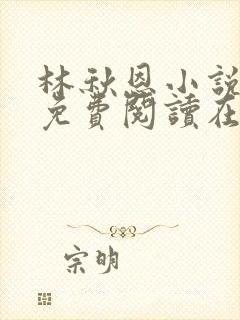 林秋恩小說
免費閱讀在
宗明